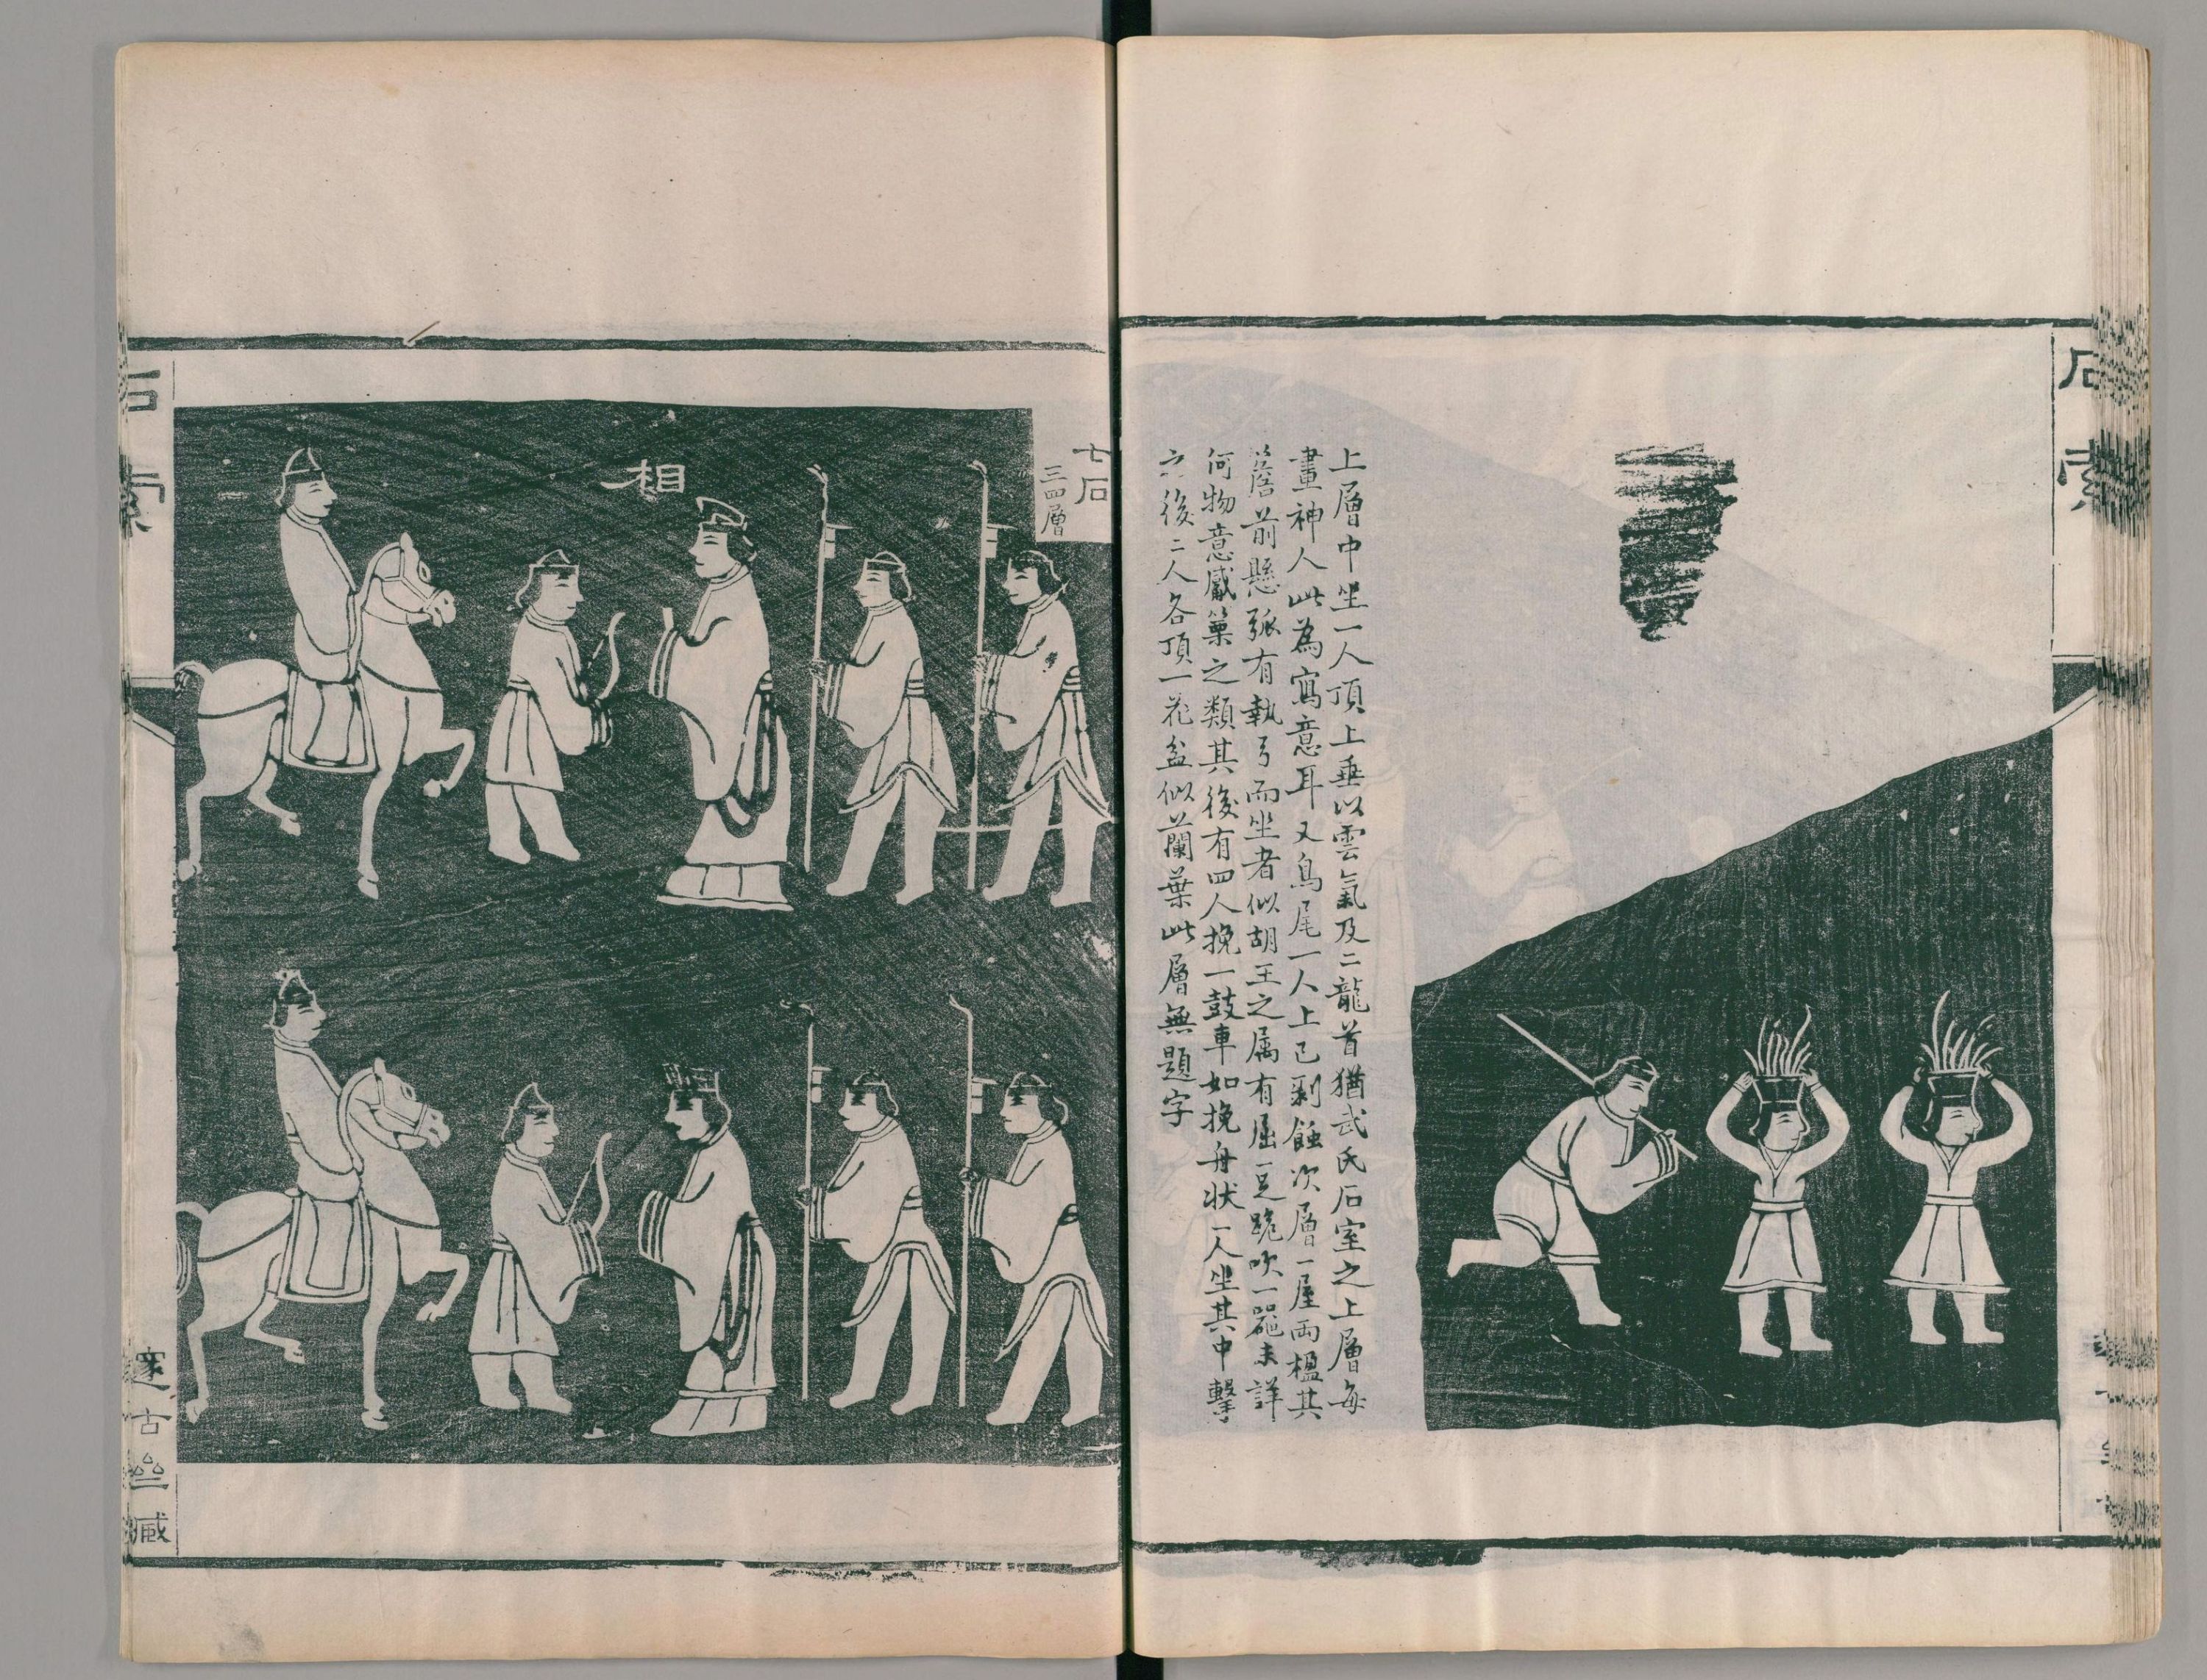 石索
上層中坐一人頂上垂以雲氣及二龍首猶武氏石室之上層每
畫神人此為寫意耳又鳥尾一人上已剝蝕次層一屋兩楹其
簷前懸弧有執弓而坐者似胡王之属有屈一足跪吹一器未詳
何物意觱篥之類其後有四人挽一鼓車如挽舟狀一人坐其中擊
之後二人各頂一花盆似蘭葉此層無題字
七石
三四層
相
石索
邃古齋藏